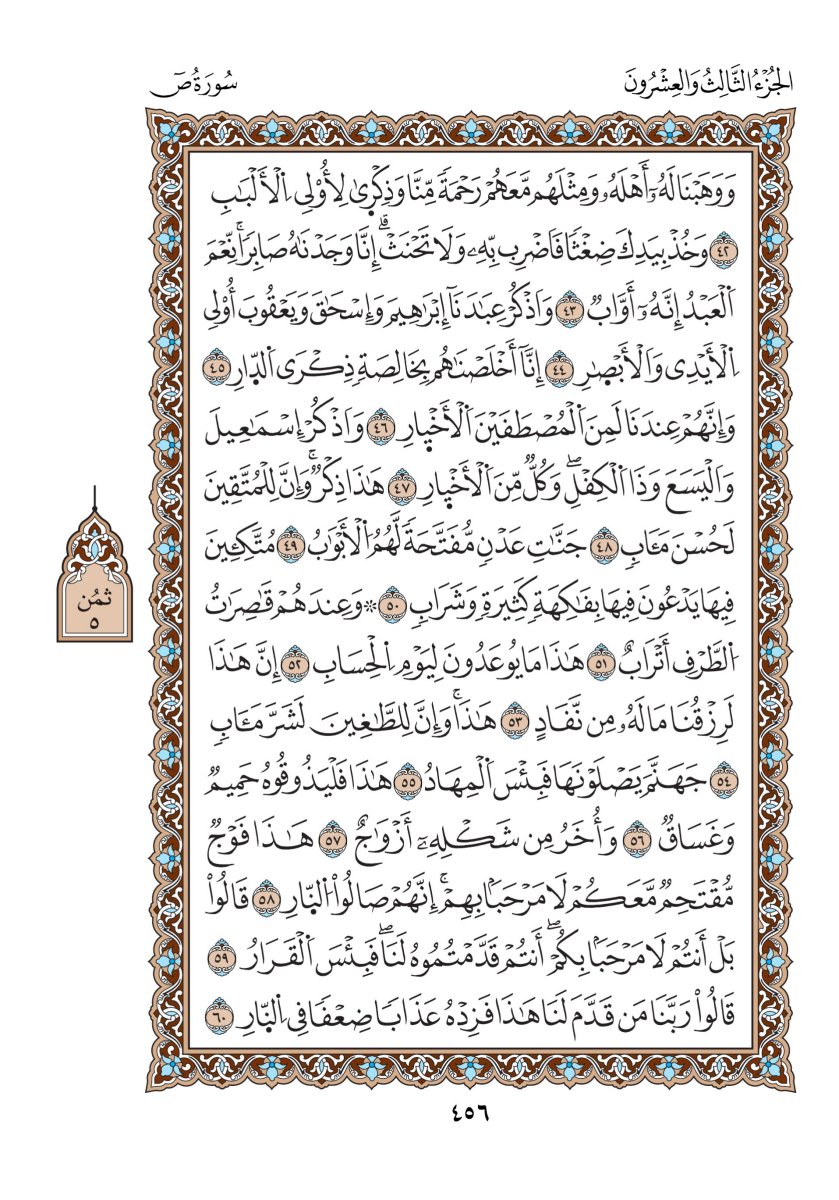 الجُزْءُ الثَّالِثُ وَالعِشْرُونَ
سُورَةُ صٓ
وَوَهَبْنَا لَهُۥٓ أَهْلَهُۥ وَمِثْلَهُم مَّعَهُمْ رَحْمَةً مِّنَّا وَذِكْرٜىٰ لِأُوْلِى اِ۬لْأَلْبَٰبِ
٤٢ وَخُذْ بِيَدِكَ ضِغْثًا فَاضْرِب بِّهِۦ وَلَا تَحْنَثْۗ إِنَّا وَجَدْنَٰهُ صَابِرًاۚ نِّعْمَ
اَ۬لْعَبْدُ إِنَّهُۥٓ أَوَّابٌ ٤٣ وَاَذْكُرْ عِبَٰدَنَآ إِبْرَٰهِيمَ وَإِسْحَٰقَ وَيَعْقُوبَ أُوْلِى
اِ۬لْأَيْدِى وَالْأَبْصٰٜرِ ٤٤ إِنَّآ أَخْلَصْنَٰهُم بِخَالِصَةٍ ذِكْرَى اَ۬لدّٜارِ ٤٥
وَإِنَّهُمْ عِندَنَا لَمِنَ اَ۬لْمُصْطَفَيْنَ اَ۬لْأَخْيٜارِ ٤٦ وَاَذْكُرْ إِسْمَٰعِيلَ
وَالْيَسَعَ وَذَا اَ۬لْكِفْلِۖ وَكُلٌّ مِّنَ اَ۬لْأَخْيٜارِ ٤٧ هَٰذَا ذِكْرٌۚ وَإِنَّ لِلْمُتَّقِينَ
لَحُسْنَ مَـَٔابٍ ٤٨ جَنَّٰتِ عَدْنٍ مُّفَتَّحَةً لَّهُمُ اُ۬لْأَبْوَٰبُ ٤٩ مُتَّكِـِٔينَ
فِيهَا يَدْعُونَ فِيهَا بِفَٰكِهَةٍ كَثِيرَةٍ وَشَرَابٍ ٥٠ * وَعِندَهُمْ قَٰصِرَٰتُ
اُ۬لطَّرْفِ أَتْرَابٌ ٥١ هَٰذَا مَا يُوعَدُونَ لِيَوْمِ اِ۬لْحِسَابِ ٥٢ إِنَّ هَٰذَا
لَرِزْقُنَا مَا لَهُۥ مِن نَّفَادٍ ٥٣ هَٰذَاۚ وَإِنَّ لِلطَّٰغِينَ لَشَرَّ مَـَٔابٍ
٥٤ جَهَنَّمَ يَصْلَوْنَهَا فَبِئْسَ اَ۬لْمِهَادُ ٥٥ هَٰذَا فَلْيَذُوقُوهُ حَمِيمٌ
وَغَسَاقٌ ٥٦ وَأُخَرُ مِن شَكْلِهِۦٓ أَزْوَٰجٌ ٥٧ هَٰذَا فَوْجٌ
مُّقْتَحِمٌ مَّعَكُمْ لَا مَرْحَبًا بِهِمْۚ إِنَّهُمْ صَالُواْ اُ۬لنّٜارِ ٥٨ قَالُواْ
بَلْ أَنتُمْ لَا مَرْحَبًا بِكُمْۖ أَنتُمْ قَدَّمْتُمُوهُ لَنَاۖ فَبِئْسَ اَ۬لْقَرَارُ ٥٩
قَالُواْ رَبَّنَا مَن قَدَّمَ لَنَا هَٰذَا فَزِدْهُ عَذَابًا ضِعْفًا فِى اِ۬لنّٜارِ ٦٠
ثُمُن
٥
٤٥٦